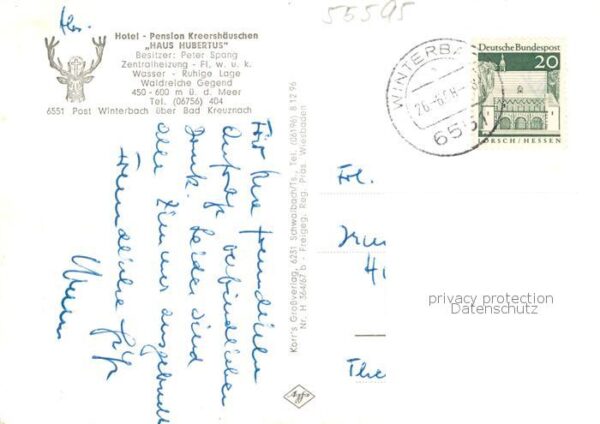 55595
Hotel - Pension Kreershäuschen
„HAUS HUBERTUS"
Besitzer: Peter Spang
Zentralheizung - Fl. w. u. k.
Wasser - Ruhige Lage
Waldreiche Gegend
450 - 600 m ü. d. Meer
Tel. (06756) 404
6551 Post Winterbach über Bad Kreuznach
WINTERBA
26.-6.68
Deutsche Bundespost
20
LORSCH / HESSEN
Für Ihre freundliche
Anfrage verbindlichen
Dank. Leider sind
alle Zimmer ausgebucht
Freundliche Grüße
Korr's Großverlag, 6231 Schwalbach/Ts., Tel. (06196) 8 12 96
Nr. H 364/67 b - Freigeg. Reg. Präs. Wiesbaden
Agfa
Frl.
The
privacy protection
Datenschutz